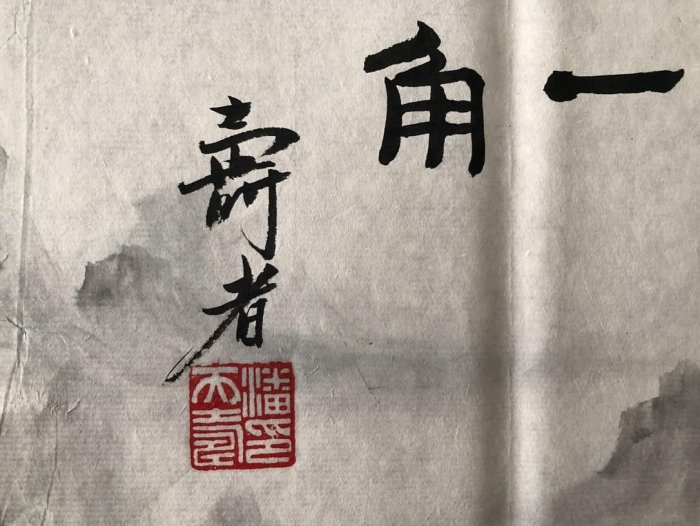 一角
壽者
潘印天壽